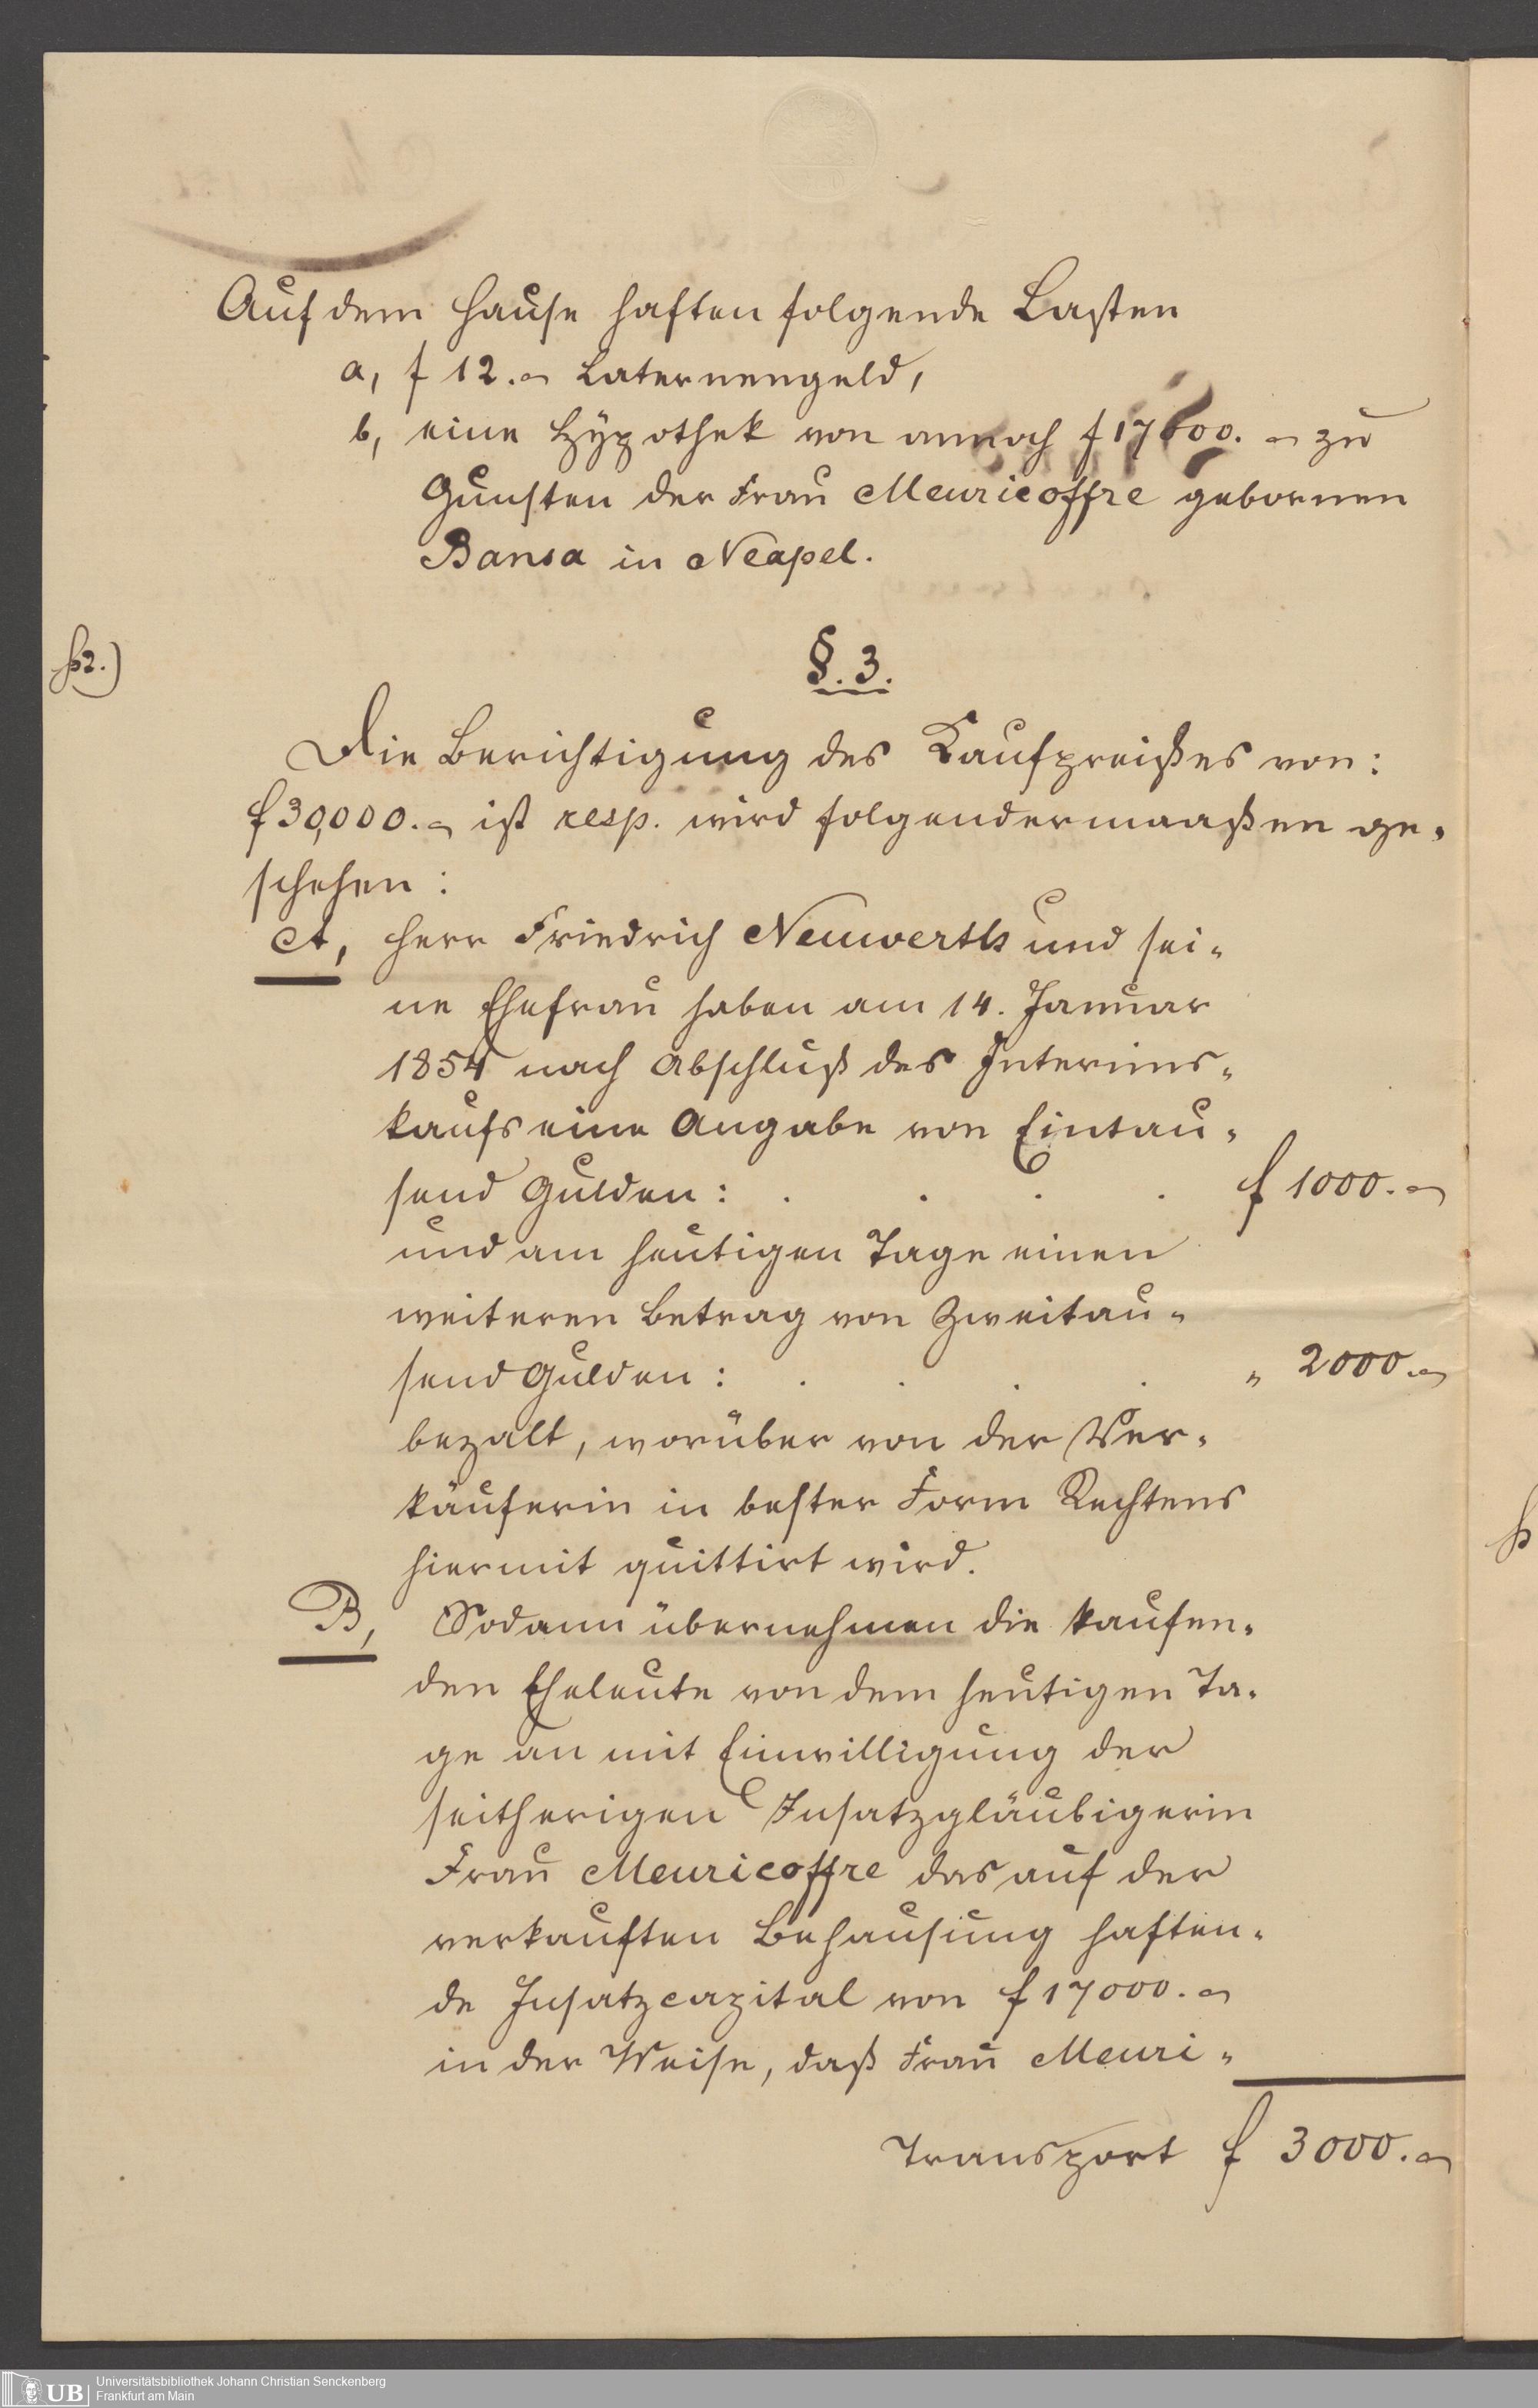 Auf dem Hause haften folgende Lasten
a, f 12.- Laternengeld,
b, eine Hÿpothek von annoch f 17000.- zu
Gunsten der Frau Meuricoffre gebornen
Bansa in Neapel.
§. 3.
Die Berichtigung des Kaufpreißes von:
f 30,000.- ist resp. wird folgendermaaßen ge-
schehen:
A, Herr Friedrich Neuwerth und sei-
ne Ehefrau haben am 14. Januar
1854 nach Abschluß des Interims-
kaufs eine Angabe von Eintau-
send Gulden: . . . . f 1000.-
und am heutigen Tage einen
weiteren Betrag von Zweitau-
send Gulden: . . . . " 2000.-
bezalt, worüber von der Ver-
käuferin in bester Form Rechtens
hiermit quittirt wird.
B, Sodann übernehmen die kaufen-
den Eheleute von dem heutigen Ta-
ge an mit Einwilligung der
seitherigen Insatzgläubigerin
Frau Meuricoffre das auf der
verkauften Behausung haften-
de Insatzcapital von f 17000.-
in der Weise, daß Frau Meuri-
Transport f 3000.-
UB Universitätsbibliothek Johann Christian Senckenberg
Frankfurt am Main